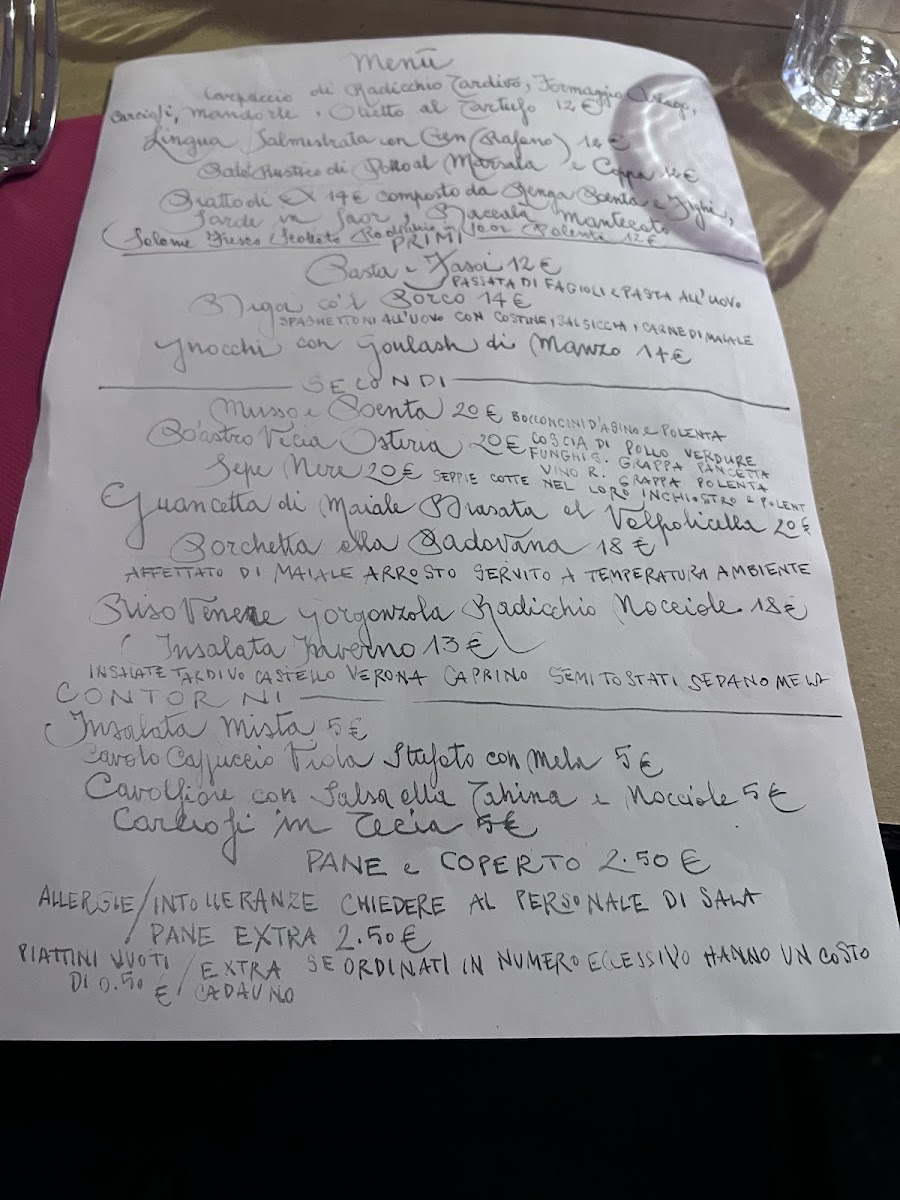 Menù
Carpaccio di Radicchio Tardivo, Formaggio Asiago,
Carciofi, Mandorle, Olietto al Tartufo 12 €
Lingua Salmistrata con Cren (Rafano) 14 €
Patè Rustico di Pollo al Marsala e Coppa 14 €
Piatto di 14 € composto da Renga Poenta e Fighi,
Sarde in Saor, Baccalà Mantecato
(Salame Fresco Scottato Radicchio in Saor Polenta 12 €
PRIMI
Pasta e Fasoi 12 €
PASSATA DI FAGIOLI e PASTA ALL'UOVO
Bigoi co'l Porco 14 €
SPAGHETTONI ALL'UOVO CON COSTINE, SALSICCIA, CARNE DI MAIALE
Gnocchi con Goulash di Manzo 14 €
SECONDI
Musso e Poenta 20 € BOCCONCINI D'ASINO e POLENTA
Po'astro Vecia Osteria 20 € COSCIA DI POLLO VERDURE
FUNGHI S. GRAPPA PANCETTA
VINO R. GRAPPA POLENTA
Sepe Nere 20 € SEPPIE COTTE NEL LORO INCHIOSTRO e POLENT
Guancetta di Maiale Brasata al Valpolicella 20 €
Porchetta alla Padovana 18 €
AFFETTATO DI MAIALE ARROSTO SERVITO A TEMPERATURA AMBIENTE
Riso Venere Gorgonzola Radicchio Nocciole 18 €
Insalata Inverno 13 €
INSALATE TARDIVO CASTELLO VERONA CAPRINO SEMI TOSTATI SEDANO MELA
CONTORNI
Insalata Mista 5 €
Cavolo Cappuccio Viola Stufato con Mela 5 €
Cavolfiore con Salsa alla Tahina e Nocciole 5 €
Carciofi in Tecia 5 €
PANE e COPERTO 2.50 €
ALLERGIE/INTOLLERANZE CHIEDERE AL PERSONALE DI SALA
PANE EXTRA 2.50 €
PIATTINI VUOTI / EXTRA SE ORDINATI IN NUMERO ECCESSIVO HANNO UN COSTO
DI 0.50 € / CADAUNO